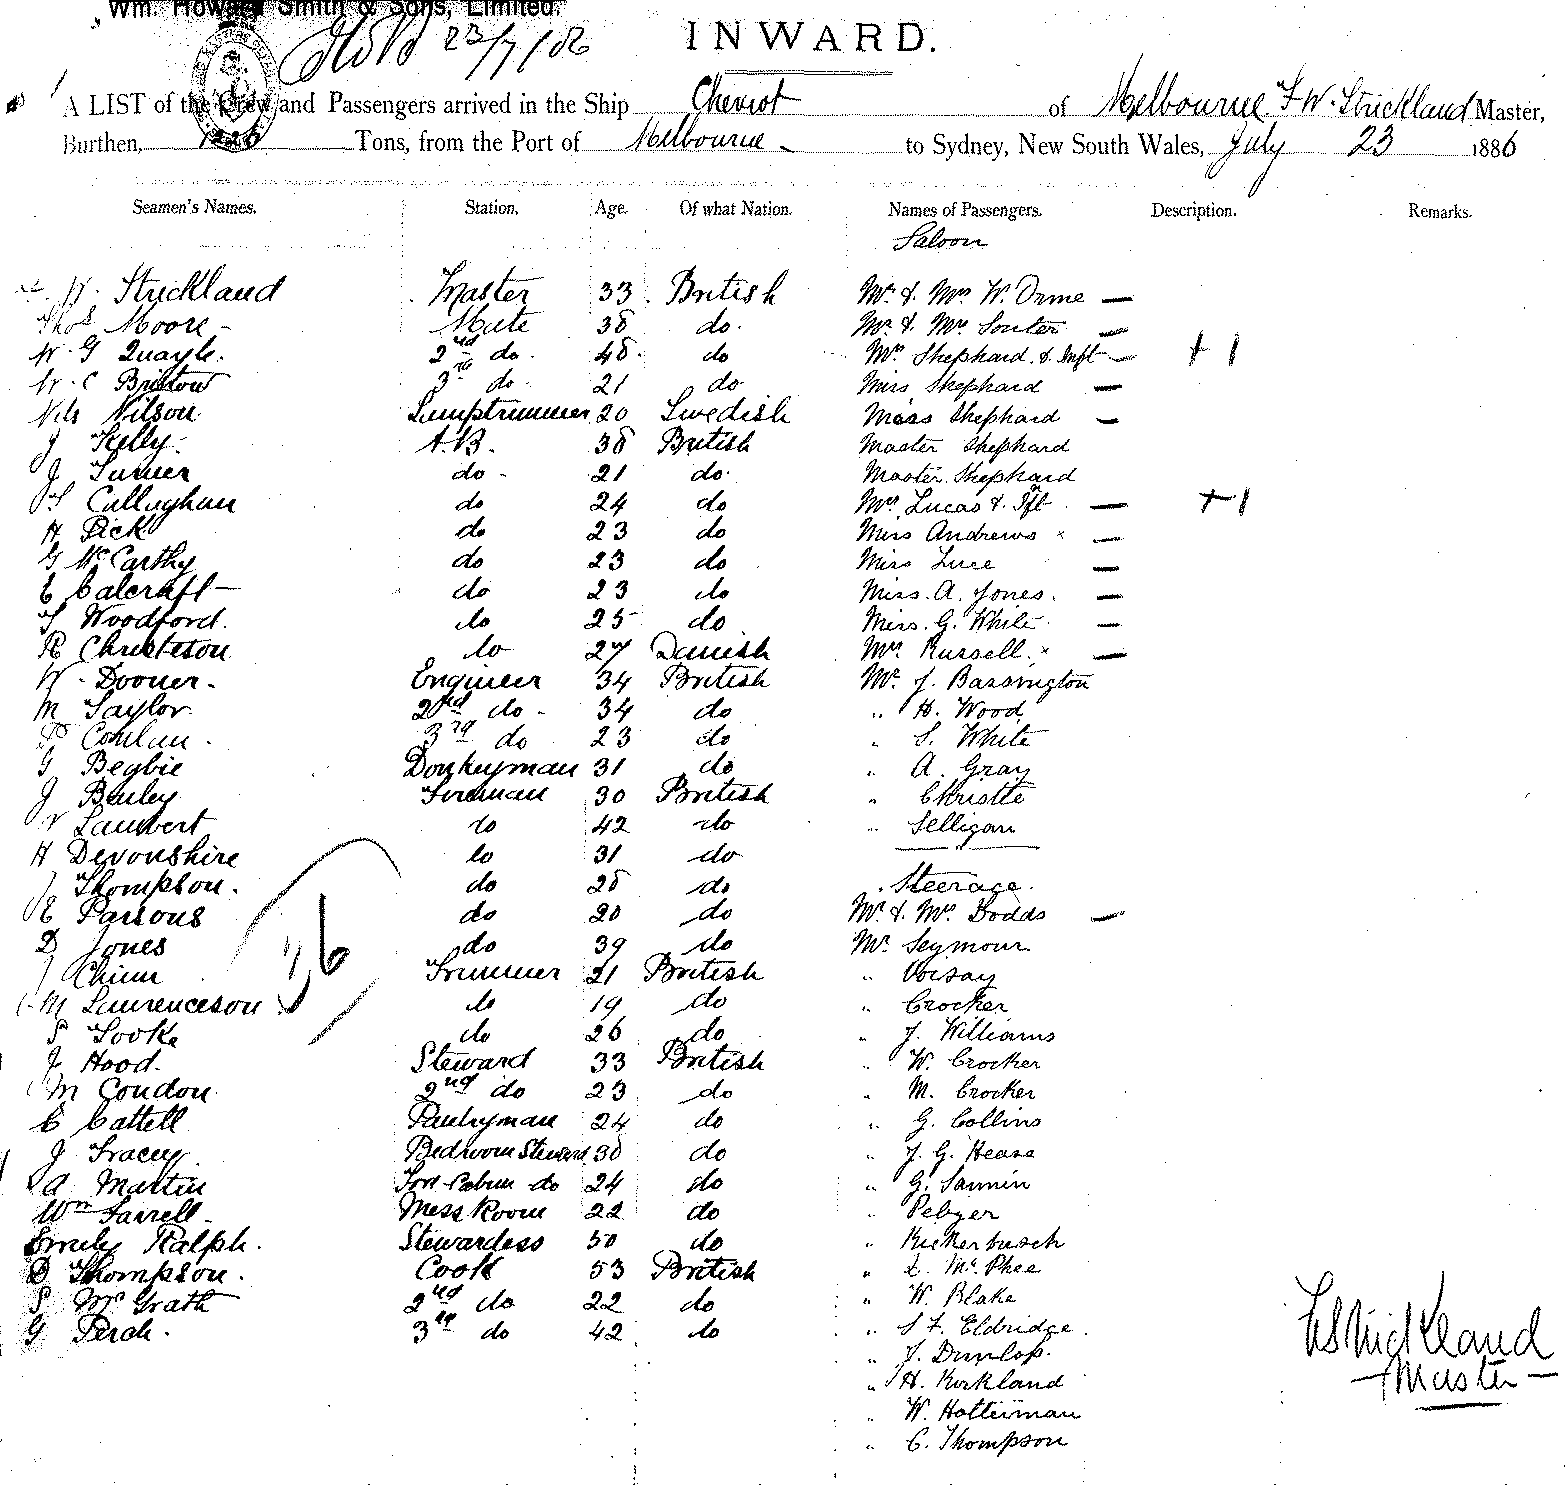 Wm. Howard Smith & Sons, Limited.
23/7/86
INWARD.
A LIST of the Crew and Passengers arrived in the Ship Cheviot of Melbourne F. W. Strickland Master,
Burthen, 1226 Tons, from the Port of Melbourne to Sydney, New South Wales, July 23 1886
Seamen's Names. Station. Age. Of what Nation. Names of Passengers. Description. Remarks.
Saloon
W. Strickland Master 33 British Mr. & Mrs W. Orme —
Thos Moore Mate 38 do. Mr. & Mrs Souter —
W. G Quayle. 2nd do. 48. do Mrs Shephard & Inft — + 1
W. C Bristow 3rd do. 21 do Miss Shephard —
Nils Nilson Lamptrimmer 20 Swedish Miss Shephard —
J Kelly. A.B. 38 British Master Shephard
J Turner do 21 do. Master Shephard
T Callaghan do 24 do Mrs Lucas & Ift — + 1
H Pick do 23 do Miss Andrews × —
G McCarthy do 23 do Miss Luce —
E Calcraft do 23 do Miss. A. Jones. —
T Woodford. do 25 do Miss. G. White —
R Christeson do 27 Danish Mrs Russell. × —
W. Dooner. Engineer 34 British Mr. J. Bassington
M Taylor 2nd do 34 do " H. Wood
P Conlan. 3rd do 23 do " S. White
G Begbie Donkeyman 31 do " A. Gray
J Bailey Fireman 30 British " Christie
Lambert do 42 do " Selligan
H Devonshire do 31 do
J Thompson. do 28 do Steerage.
E Parsons do 20 do Mr. & Mrs. Dodds —
D Jones do 39 do Mr. Seymour
J Chinn Trimmer 21 British " Vorsay
M Laurenceson do 19 do " Crocker
S Tooke do 26 do " J. Williams
J Hood. Steward 33 British " W. Crocker
M Condon 2nd do 23 do " M. Crocker
C Cattell Pantryman 24 do " G. Collins
J Tracey Bedroom Steward 38 do " J. G. Hease
A Martin Fore Cabin do 24 do " G. Sannin
Wm Farrell Mess Room 22 do " Pebyer
Emily Ralph. Stewardess 50 do " Kickerbusch
D Thompson. Cook 53 British " D. McPhee
P McGrath 2nd do 22 do " W. Blake
G Perch. 3rd do 42 do " S F. Eldridge.
" J. Dunlop.
" H. Kirkland
" W. Holterman
" C. Thompson
36
F W Strickland
Master